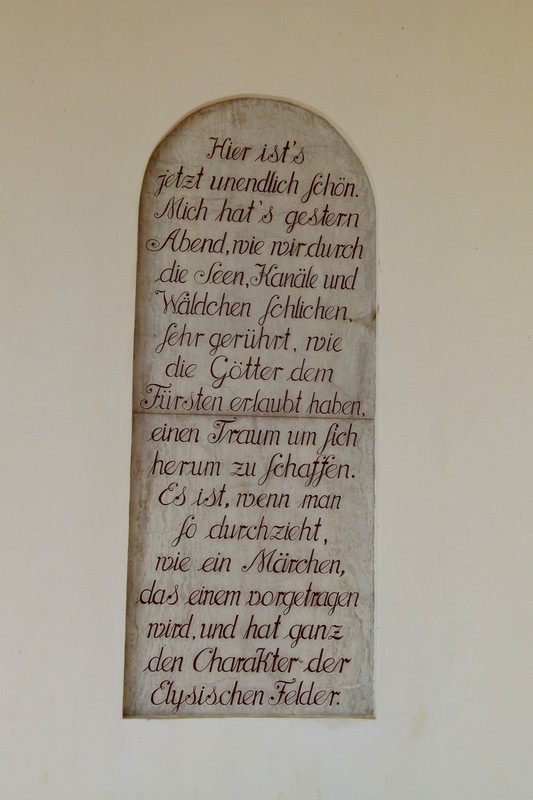 Hier ist's
jetzt unendlich schön.
Mich hat's gestern
Abend, wie wir durch
die Seen, Kanäle und
Wäldchen schlichen,
sehr gerührt, wie
die Götter dem
Fürsten erlaubt haben,
einen Traum um sich
herum zu schaffen.
Es ist, wenn man
so durchzieht,
wie ein Märchen,
das einem vorgetragen
wird, und hat ganz
den Charakter der
Elysischen Felder.